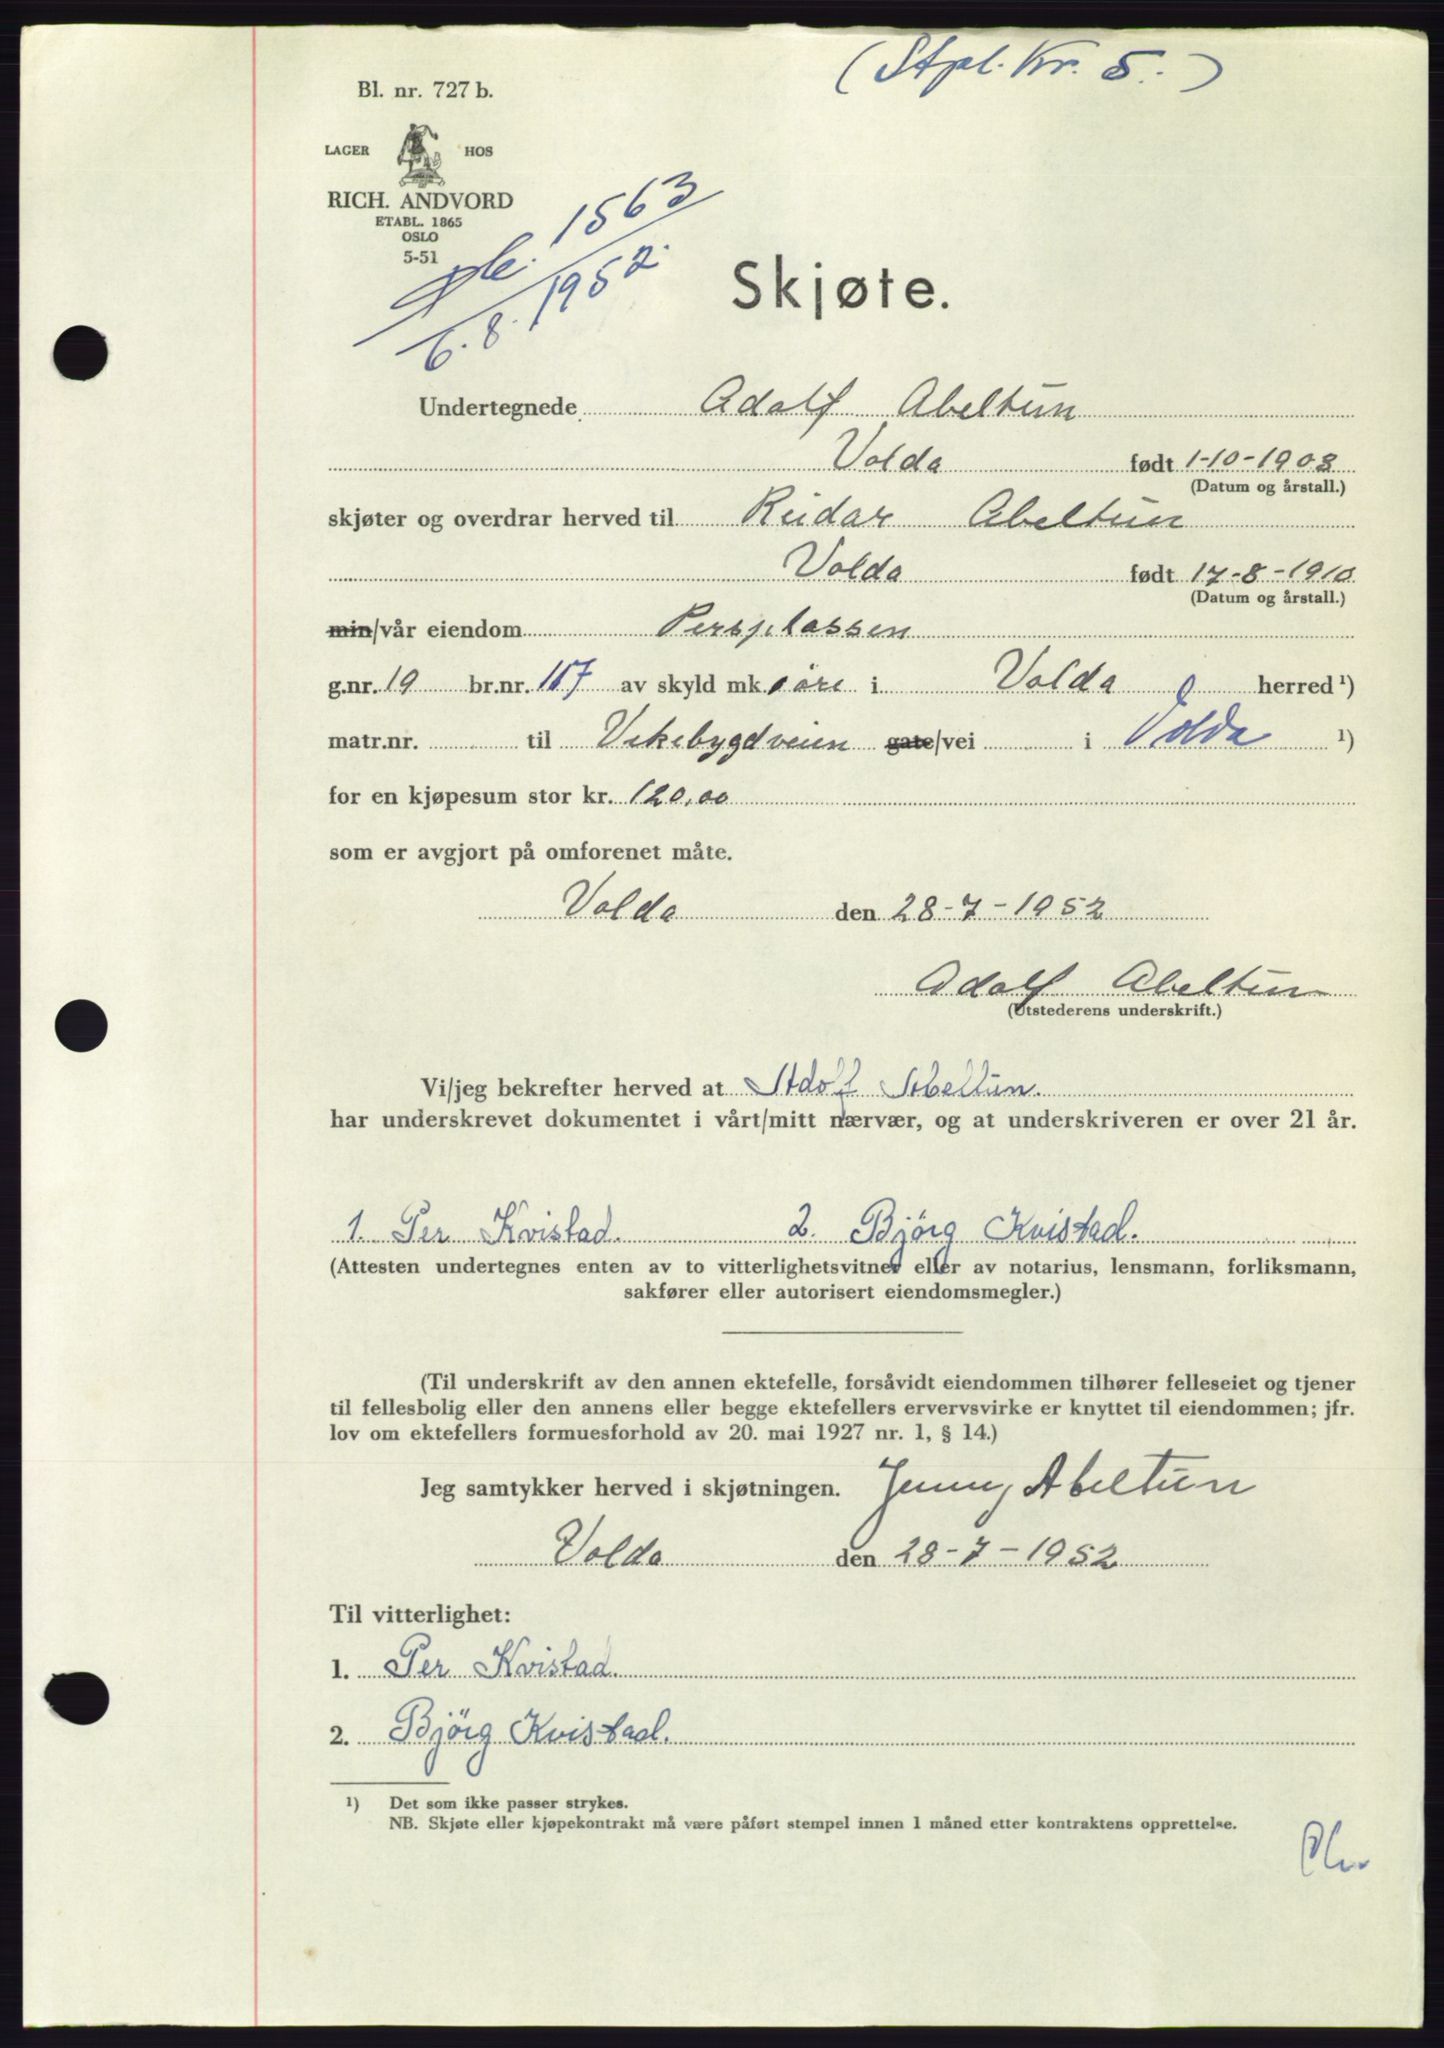 (Stpl. Kr. 5.-)
Bl. nr. 727 b.
LAGER HOS
RICH. ANDVORD
ETABL. 1865
OSLO
5-51
1563
6.8. 1952.
Skjøte.
Undertegnede Adolf Abeltun
Volda født 1-10-1908
(Datum og årstall.)
skjøter og overdrar herved til Reidar Abeltun
Volda født 17-8-1910
(Datum og årstall.)
min/vår eiendom Persplassen
g.nr. 19 br.nr. 107 av skyld mk. øre i Volda herred ¹)
matr.nr. til Vikebygdveien gate/vei i Volda ¹)
for en kjøpesum stor kr. 120,00
som er avgjort på omforenet måte.
Volda den 28-7-1952
Adolf Abeltun
(Utstederens underskrift.)
Vi/jeg bekrefter herved at Adolf Abeltun.
har underskrevet dokumentet i vårt/mitt nærvær, og at underskriveren er over 21 år.
1. Per Kvistad. 2. Björg Kvistad.
(Attesten undertegnes enten av to vitterlighetsvitner eller av notarius, lensmann, forliksmann,
sakfører eller autorisert eiendomsmegler.)
(Til underskrift av den annen ektefelle, forsåvidt eiendommen tilhører felleseiet og tjener
til fellesbolig eller den annens eller begge ektefellers ervervsvirke er knyttet til eiendommen; jfr.
lov om ektefellers formuesforhold av 20. mai 1927 nr. 1, § 14.)
Jeg samtykker herved i skjøtningen. Jenny Abeltun
Volda den 28-7-1952
Til vitterlighet:
1. Per Kvistad.
2. Björg Kvistad.
¹) Det som ikke passer strykes.
NB. Skjøte eller kjøpekontrakt må være påført stempel innen 1 måned etter kontraktens opprettelse.